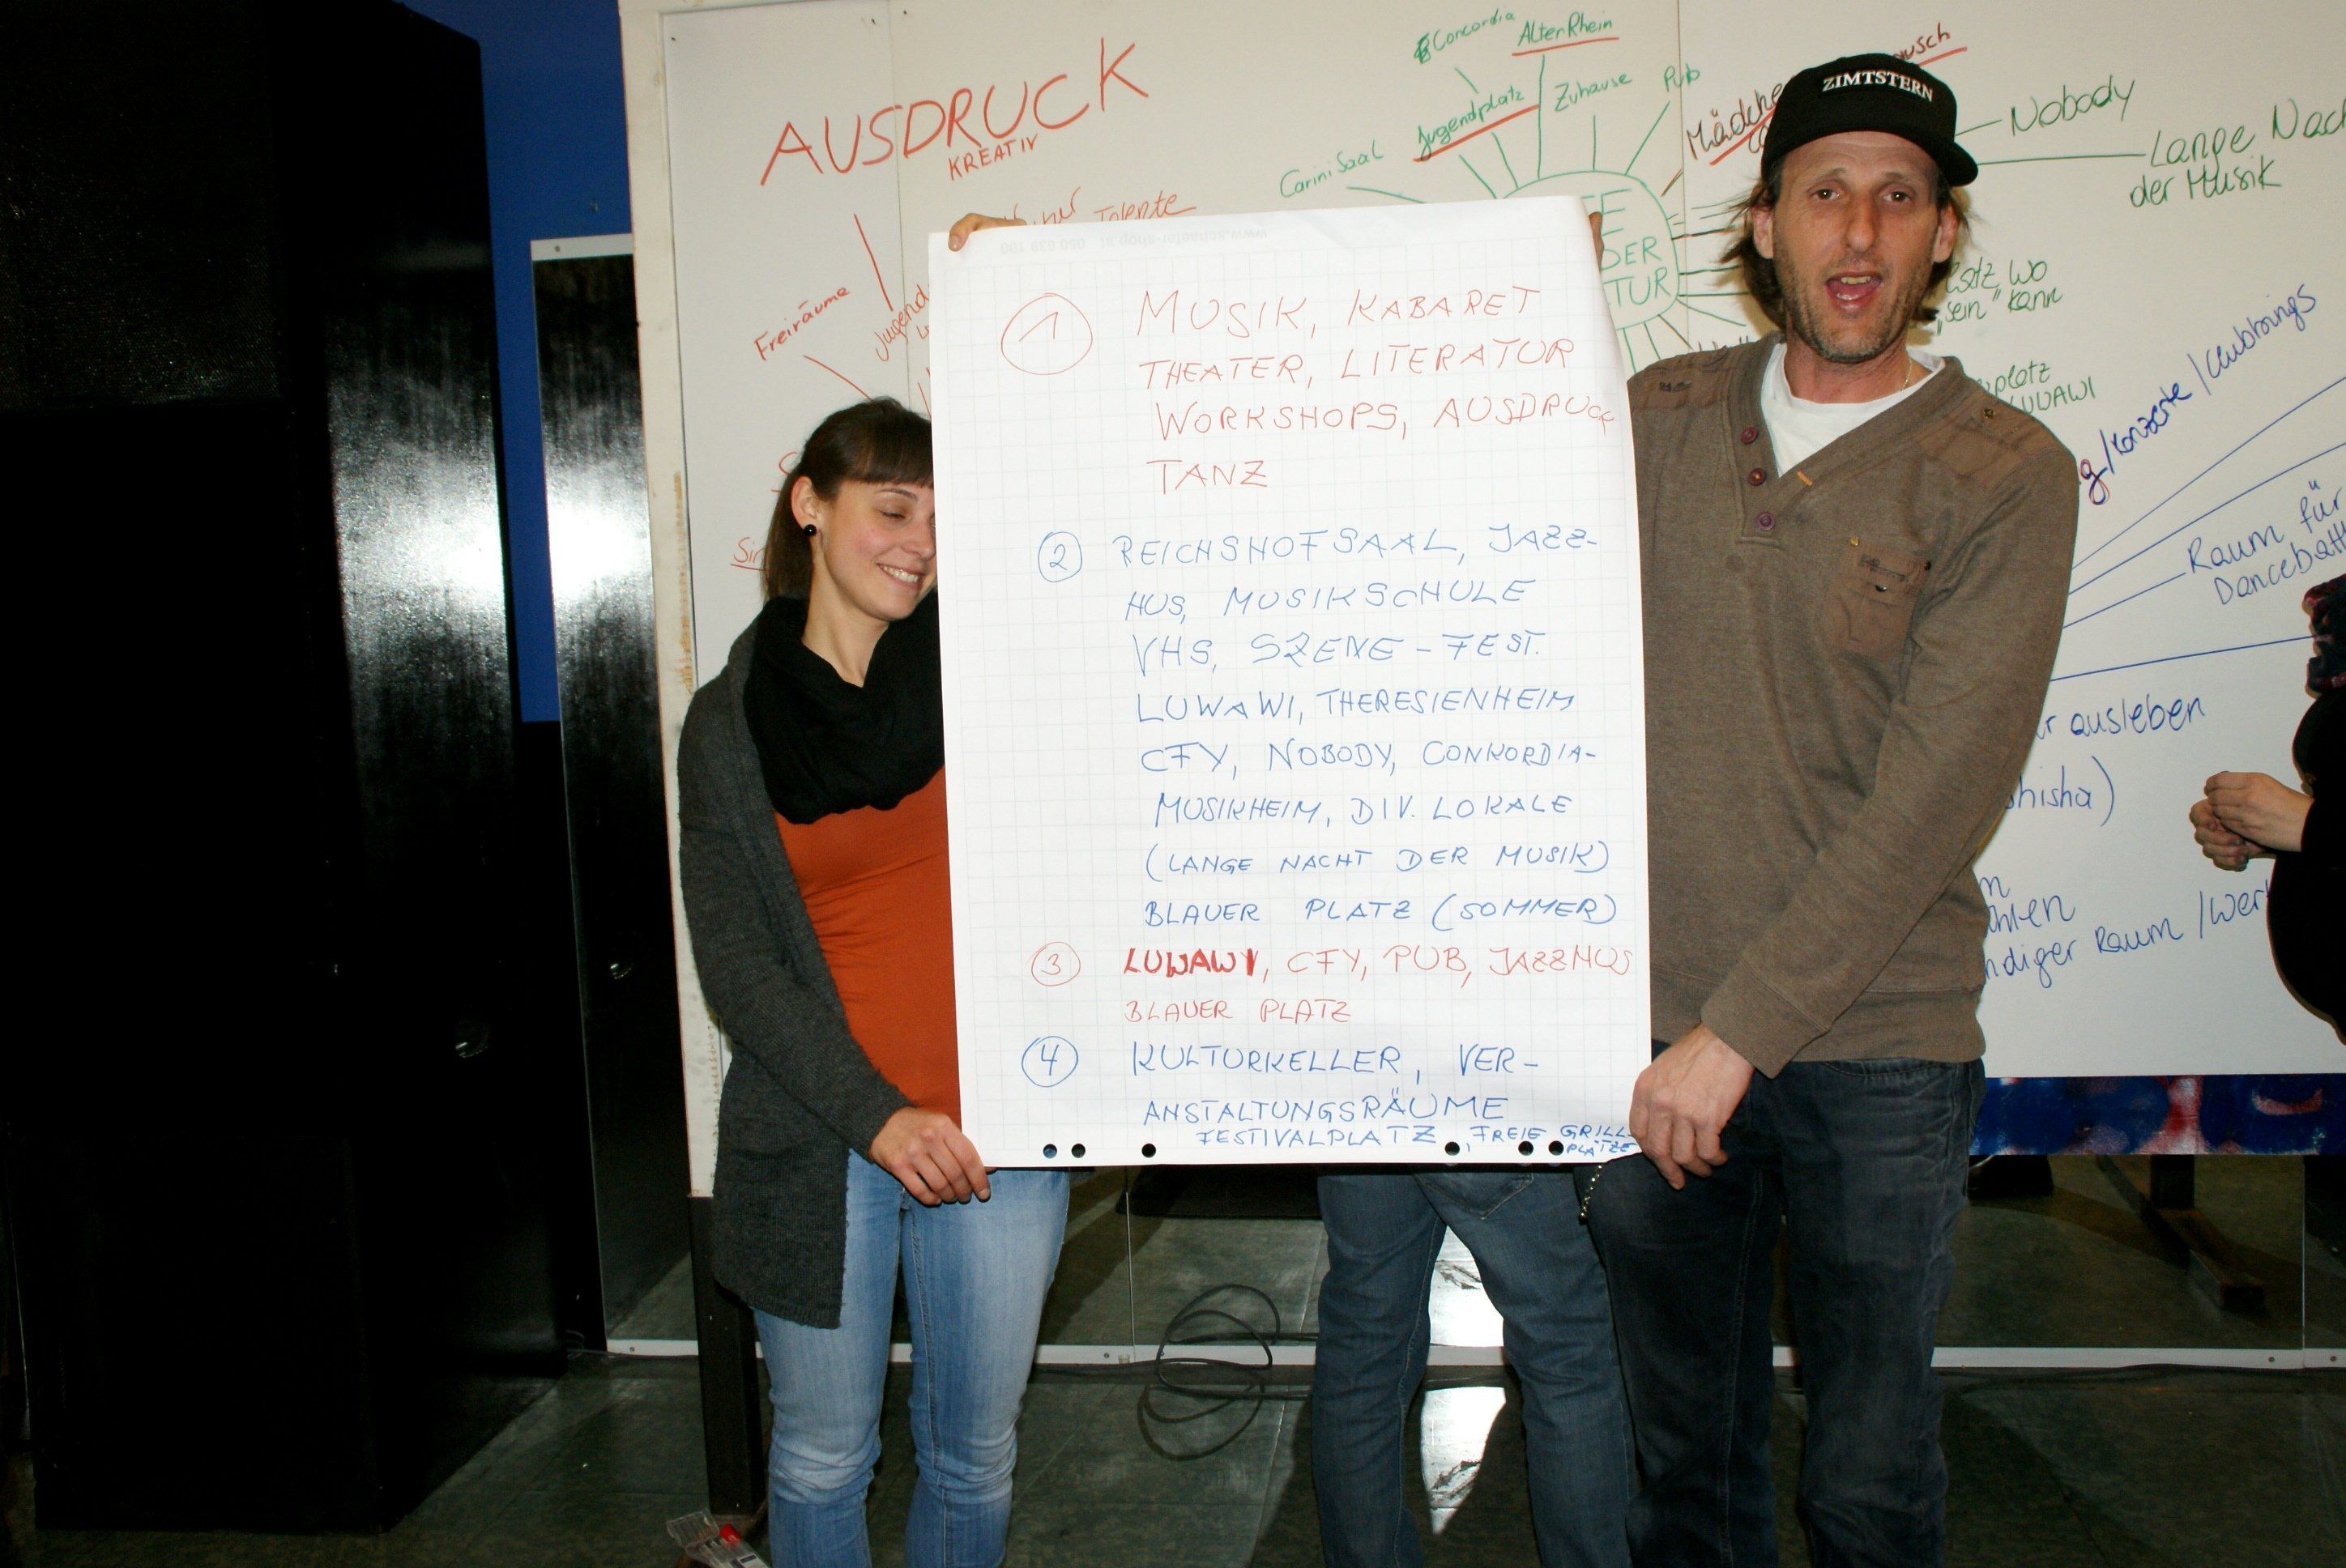 AUSDRUCK
KREATIV
Talente
Freiräume
Jugend
Concordia
AlterRhein
Jugendplatz
Zuhause
Pub
Carini Saal
DER
TUR
ZIMTSTERN
Nobody
Lange Nach
der Musik
wo
"sein" kann
platz
LUWAWI
/Konzerte/Clubbings
Raum für
Dancebatt
ausleben
shisha)
Raum /wer
www.schaefer-shop.at 050 639 100
1 MUSIK, KABARET
THEATER, LITERATUR
WORKSHOPS, AUSDRUCK
TANZ
2 REICHSHOFSAAL, JAZZ-
HUS, MUSIKSCHULE
VHS, SZENE-FEST.
LUWAWI, THERESIENHEIM
CFY, NOBODY, CONKORDIA-
MUSIKHEIM, DIV. LOKALE
(LANGE NACHT DER MUSIK)
BLAUER PLATZ (SOMMER)
3 LUWAWI, CFY, PUB, JAZZHUS
BLAUER PLATZ
4 KULTURKELLER, VER-
ANSTALTUNGSRÄUME
FESTIVALPLATZ, FREIE GRILL
PLÄTZE